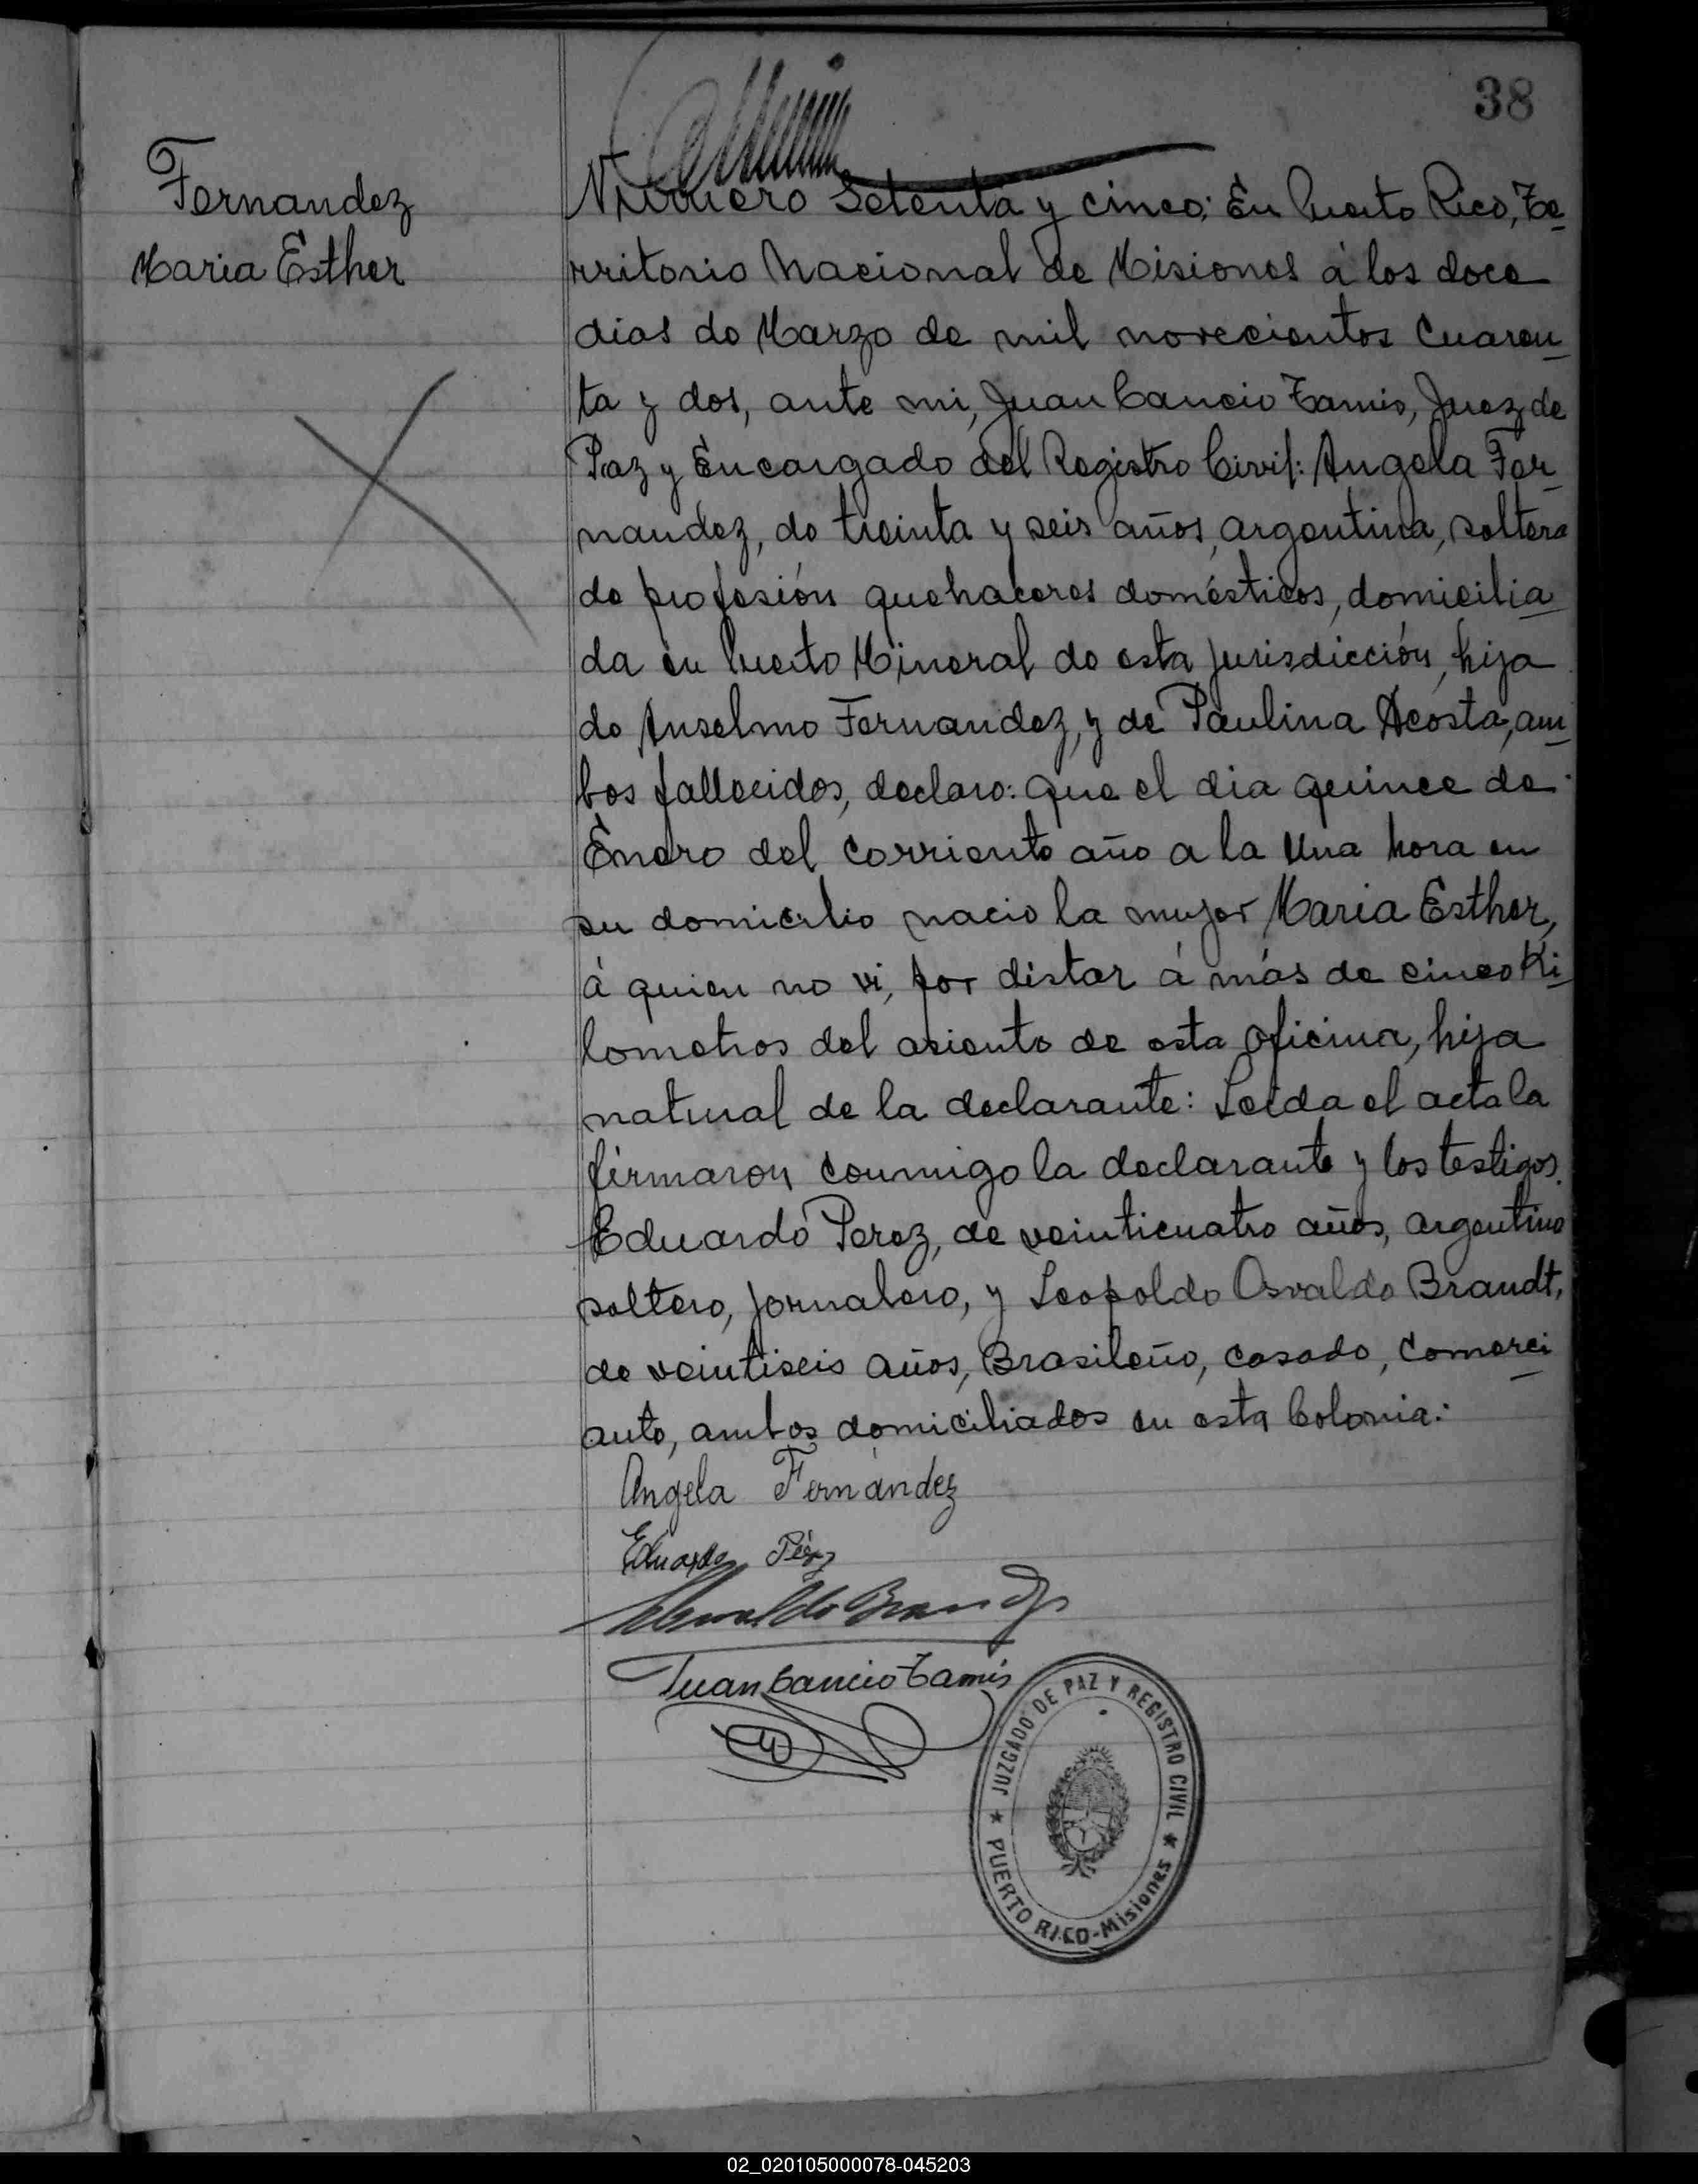 38
Fernandez
Maria Esther
Número Setenta y cinco: En Puerto Rico, Te-
rritorio Nacional de Misiones á los doce
dias de Marzo de mil novecientos Cuaren-
ta y dos, ante mi, Juan Cancio Tamis, Juez de
Paz y Encargado del Registro Civil: Angela Fer-
nandez, de treinta y seis años, argentina, soltera
de profesión quehaceres domésticos, domicilia-
da en Puerto Mineral de esta jurisdicción, hija
de Anselmo Fernandez, y de Paulina Acosta, am-
bos fallecidos, declaro: que el dia quince de
Enero del corriente año a la Una hora en
su domicilio nacio la mujer Maria Esther,
á quien no vi, por distar á más de cinco Ki-
lometros del asiento de esta oficina, hija
natural de la declarante: Leida el acta la
firmaron conmigo la declarante y los testigos.
Eduardo Perez, de veinticuatro años, argentino
soltero, jornalero, y Leopoldo Osvaldo Brandt,
de veintiseis años, Brasileño, casado, Comerci-
ante, ambos domiciliados en esta Colonia:
Angela Fernández
Eduardo Pérez
Osvaldo Brandt
Juan Cancio Tamis
JUZGADO DE PAZ Y REGISTRO CIVIL
★ PUERTO RICO-Misiones ★
02_020105000078-045203